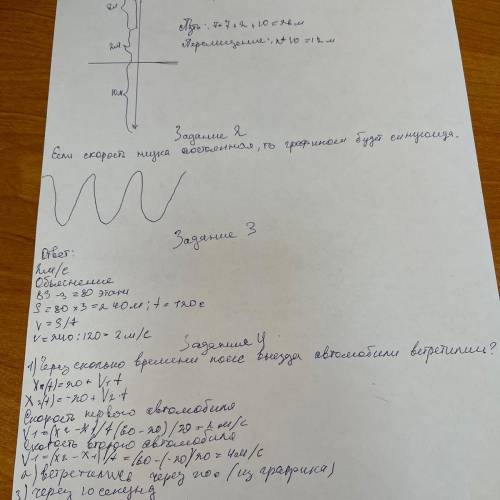 2м
Путь: 7+7+2+10=26м
2м
Перемещение: 2+10=12м
10м
Задание 2
Если скорость мизка постоянная, то графиком будет синусоида.
Задание 3
Ответ:
2м/с
Объяснение
83-3=80 этаж
S=80×3=240м; t=120с
V=S/t
V=240:120=2м/с
Задания 4
1) Через сколько времени после выезда автомобили встретились?
X₁(t)=20+V₁t
X₂(t)=-20+V₂t
Скорость первого автомобиля
V1=(X2-X1)/t(60-20)/20=2м/с
Скорость второго автомобиля
V1=(X2-X1)/t=(60-(-20)/20=4м/с
2) встретились через 20с (из графика)
3) через 10 секунд